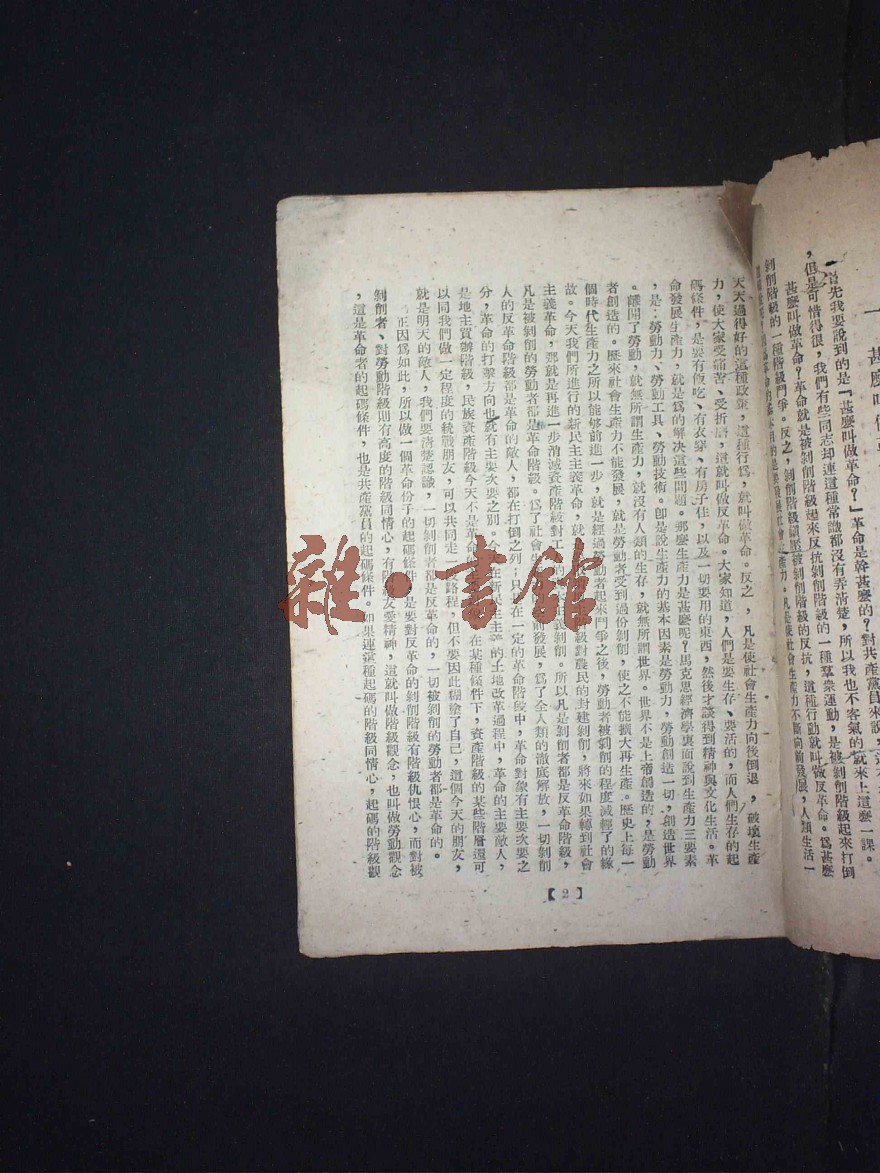 一　甚麼叫做革
首先我要說到的是『甚麼叫做革命？』革命是幹甚麼的？對共產黨員來說，
，但是可惜得很，我們有些同志却連這種常識都沒有弄清楚，所以我也不客氣的就來上這麼一課。
甚麼叫做革命？革命就是被剝削階級起來反抗剝削階級的一種羣衆運動，是被剝削階級起來打倒
剝削階級的一種階級鬥爭。反之，剝削階級鎮壓被剝削階級的反抗，這種行動就叫做反革命。爲甚麼
產力。凡是使社會生產力不斷向前發展，人類生活一
天天過得好的這種政策，這種行爲，就叫做革命。反之，凡是使社會生產力向後倒退，破壞生產
力，使大家受痛苦、受折磨，這就叫做反革命。大家知道，人們是要生存、要活的，而人們生存的起
碼條件，是要有飯吃、有衣穿、有房子住，以及一切要用的東西，然後才談得到精神與文化生活。革
命發展生產力，就是爲的解決這些問題。那麼生產力是甚麼呢？馬克思經濟學裏面說到生產力三要素
，是：勞動力、勞動工具、勞動技術。卽是說生產力的基本因素是勞動力，勞動創造一切，創造世界
。離開了勞動，就無所謂生產力，就沒有人類的生存，就無所謂世界。世界不是上帝創造的，是勞動
者創造的。歷來社會生產力不能發展，就是勞動者受到過份剝削，使之不能擴大再生產。歷史上每一
個時代生產力之所以能够前進一步，就是經過勞動者起來鬥爭之後，勞動者被剝削的程度減輕了的緣
故。今天我們所進行的新民主主義革命，就是要消滅地主階級對農民的封建剝削，將來如果轉到社會
主義革命，那就是再進一步消滅資產階級對工人的資本主義剝削。所以凡是剝削者都是反革命階級，
凡是被剝削的勞動者都是革命階級。爲了社會生產力的向前發展，爲了全人類的澈底解放，一切剝削
人的反革命階級都是革命的敵人，都在打倒之列；只是在一定的革命階段中，革命對象有主要次要之
分，革命的打擊方向也就有主要次要之別。今天在新民主主義的土地改革過程中，革命的主要敵人，
是地主買辦階級，民族資產階級今天不是革命的 在某種條件下，資產階級的某些階層還可
以同我們做一定程度的統戰朋友，可以共同走一段路程，但不要因此糊塗了自己，這個今天的朋友，
就是明天的敵人，我們要清楚認識，一切剝削者都是反革命的，一切被剝削的勞動者都是革命的。
正因爲如此，所以做一個革命份子的起碼條件，是要對反革命的剝削階級有階級仇恨心，而對被
剝削者、對勞動階級則有高度的階級同情心，有階級友愛精神，這就叫做階級觀念，也叫做勞動觀念
，這是革命者的起碼條件，也是共產黨員的起碼條件。如果連這種起碼的階級同情心，起碼的階級觀
【2】
雜·書館